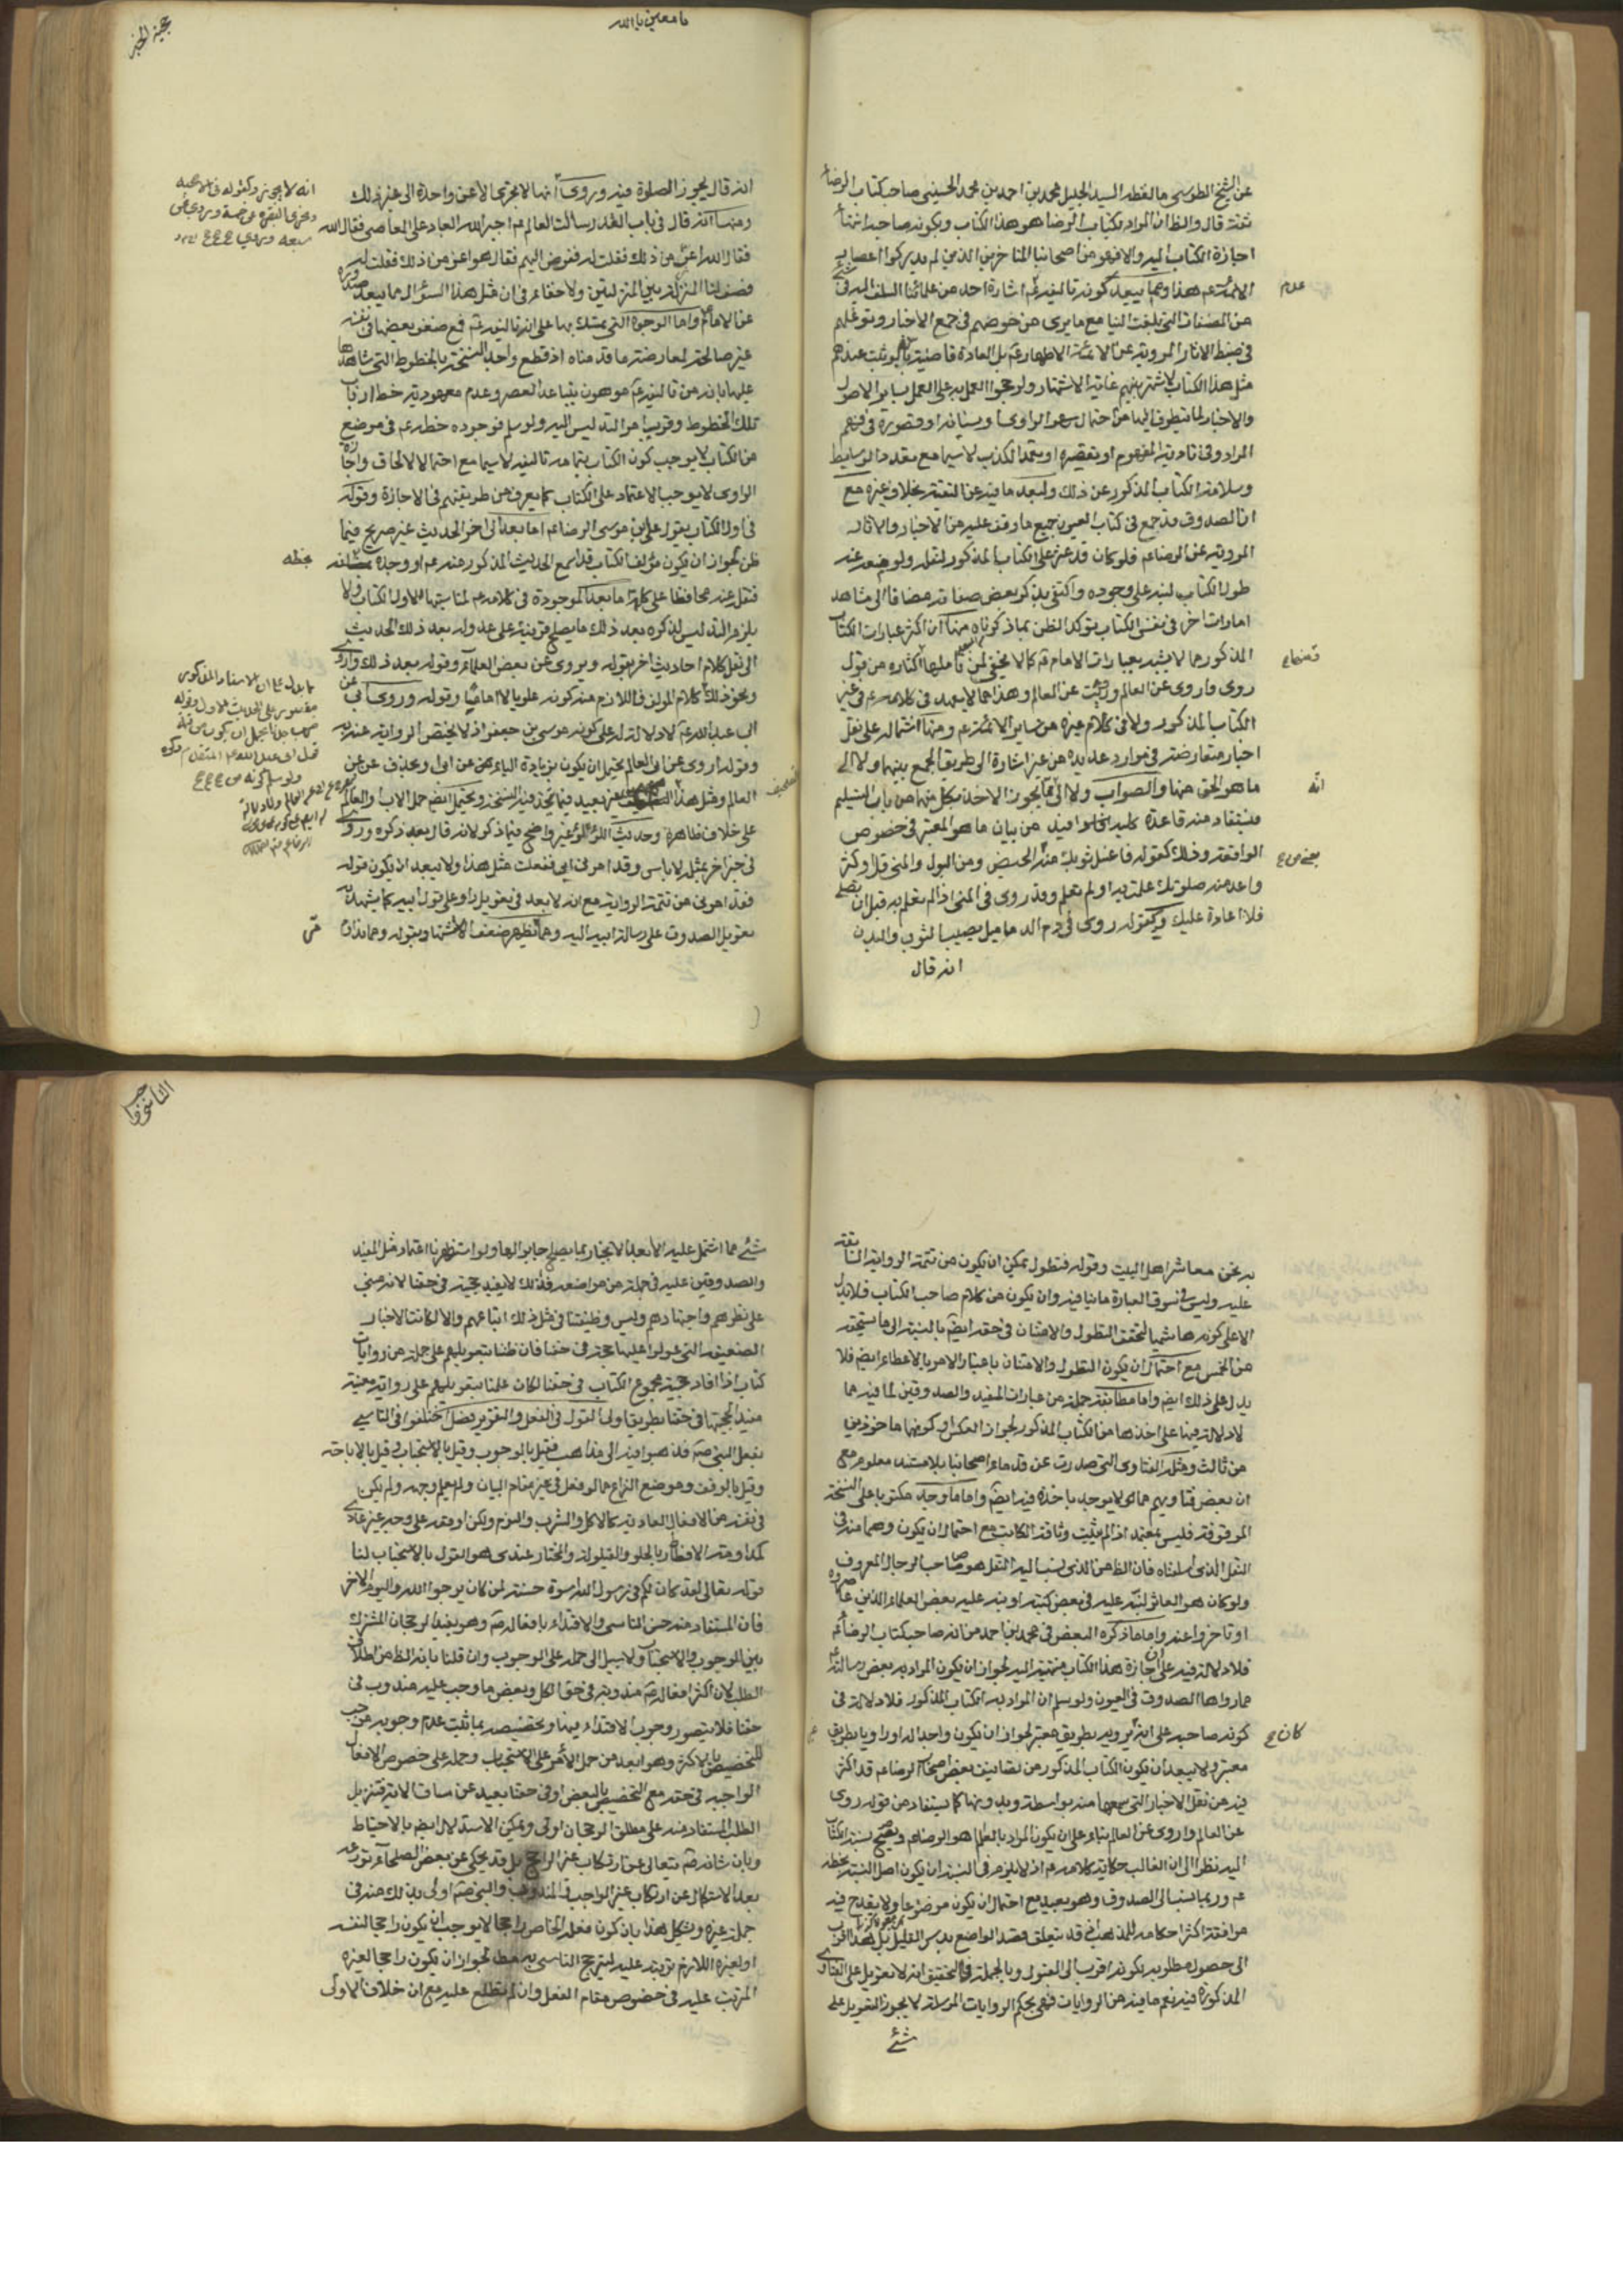 عن الشيخ الطوسي ما لفظه السيد الجليل محمد بن احمد بن محمد الحسيني صاحب كتاب الرضا
ثقة قال والظ ان المراد بكتاب الرضا هو هذا الكتاب ويكون صاحبه
اجازة الكتاب اليه والا فهو من اصحابنا المتاخرين الذين لم يدركوا اعصار
الائمة عم هذا ومما يبعد كونه تاليفه عم عدم اشارة احد من علمائنا السلف اليه في شئ
من المصنفات التي بلغت الينا مع ما يرى من خوضهم في جمع الاخبار وتوغلهم
في ضبط الاثار المروية عن الائمة الاطهار عم بل العادة قاضية بانه لو ثبت عندهم
مثل هذا الكتاب لاشتهر بينهم غاية الاشتهار ولرجحوا العمل به على العمل بساير الاصول
والاخبار لما يتطرق اليها من احتمال سهو الراوي او نسيانه او قصوره في فهم
المراد وفي تادية المفهوم او تقصيره او تعمد الكذب لا سيما مع تعدد الوسايط
وسلامة الكتاب المذكور عن ذلك ولبعد ما فيه عن التقية بخلاف غيره مع
ان الصدوق قد جمع في كتاب العيون جميع ما وقف عليه من الاخبار والاثار
المروية عن الرضا عم فلو كان قد عثر على الكتاب المذكور لنقله ولو منعه عنه
طول الكتاب لنبه على وجوده واكتفى بذكر بعض صفاته مضافا الى مشاهدة
امارات اخر في نفس الكتاب يتوكد الظن بما ذكرناه منها ان اكثر عبارات الكتاب
المذكور مما لا يشبه بعبارات الامام عم كما لا يخفى لمن تاملها ومنها اكثاره من قول
روى واروى عن العالم ورويت عن العالم وهذا مما لا يعهد في كلامه عم في غير
الكتاب المذكور ولا في كلام غيره من ساير الائمة عم ومنها اشتماله على نقل
اخبار متعارضة في موارد عديدة من غير اشارة الى طريق الجمع بينها ولا الى
ما هو الحق منها والصواب ولا الى انه مما يجوز الاخذ بكل منها من باب التسليم
فيستفاد منه قاعدة كلية بخلوا فيه من بيان ما هو المعتبر في خصوص
الواقعة وذلك كقوله فاغسل ثوبك منه الحيض ومن البول والمني قل او كثر
واعد منه صلوتك علمت به او لم تعلم وقد روى في المني اذا لم تعلم به قبل ان تصلي
فلا اعادة عليك وكقوله روى في دم الدماميل يصيب الثوب والبدن
انه قال
عدم
ومنها
انه
يا معين يا الله
حجية الخبر
انه قال يجوز الصلوة فيه وروى انها لا تجزى الا عن واحدة الى غير ذلك
ومنها انه قال في باب القدر سالت العالم عم اجبر الله العباد على المعاصي فقال الله
فقال الله اعز من ذلك فقلت له ففوض اليهم فقال هو اعز من ذلك فقلت له
فصف لنا المنزلة بين المنزلتين ولا خفاء في ان مثل هذا السؤال مما يبعد صدوره
عن الامام عم واما الوجوه التي تمسك بها على انه تاليفه عم فمع ضعف بعضها في نفسه
غير صالحة لمعارضة ما قدمناه اذ قطع واجد النسخة بالخطوط التي شاهدها
عليها بانه من تاليفه عم موهون بتباعد العصر وعدم معهودية خط ارباب
تلك الخطوط وقرب امر التدليس اليه ولو سلم فوجوده خطه عم في موضع
من الكتاب لا يوجب كون الكتاب بتمامه تاليفه لا سيما مع احتمال الالحاق واجازة
الراوى لا يوجب الاعتماد على الكتاب كما يعرف من طريقتهم في الاجازة وقوله
في اول الكتاب يقول علي بن موسى الرضا عم اما بعد الى اخر الحديث غير صريح فيما
ظن لجواز ان يكون مؤلف الكتاب قد سمع الحديث المذكور عنه عم او وجده بخطه
فنقل عنه محافظا على كلمة اما بعد الموجودة في كلامه عم لمناسبتها لاول الكتاب ولا
يلزم التدليس لذكره بعد ذلك ما يصلح قرينة على عدوله بعد ذلك الحديث
الى نقل كلام احاديث اخر بقوله ويروى عن بعض العلماء وقوله بعد ذلك واروى
ونحو ذلك كلام المولف فاللازم منه كونه علويا لا اماما وقوله وروى عن ابي
ابي عبد الله عم لا دلالة له على كونه موسى بن جعفر اذ لا يختص الرواية عنه به
وقوله اروى عن ابي العالم يحتمل ان يكون بزيادة الياء من عن ابي وبحذف عن عن
العالم ومثل هذا التصحيف غير بعيد فيما تجد فيه النسخة ويحتمل ايضا حمل الاب والعالم
على خلاف ظاهره وحديث اللؤلؤ غير واضح فيما ذكر لانه قال بعد ذكره وروى
في خبر اخر بمثله لا باس وقد امرني ابي ففعلت مثل هذا ولا يبعد ان يكون قوله
فقد امرني من تتمة الرواية مع انه لا بعد في تعويل راو على قول ابيه كما يشهد به
تعويل الصدوق على رسالة ابيه اليه ومما يظهر ضعف الاستشهاد بقوله ومما نداوم
به نحن معاشر اهل البيت وقوله فتطول يمكن ان يكون من تتمة الرواية السابقة
عليه وليس في نسق العبارة ما ينافيه وان يكون من كلام صاحب الكتاب فلا يدل
الا على كونه هاشميا لتحقق التطول والامتنان في حقه ايضا بالنسبة الى ما يستحقه
من الخمس مع احتمال ان يكون التطول والامتنان باعتبار الامر بالاعطاء ايضا فلا
يدل على ذلك ايضا واما مطابقة جملة من عبارات المفيد والصدوقين لما فيه مما
لا دلالة فيها على اخذها من الكتاب المذكور لجواز العكس او كونهما ماخوذين
من ثالث ومثله الفتاوى التي صدرت عن قدماء اصحابنا بلا مستند معلوم مع
ان بعض فتاويهم مما لا يوجد ماخذه فيه ايضا واما ما وجد مكتوبا على النسخة
الموقوفة فليس بمعتمد اذ لم يثبت وثاقة الكاتب مع احتمال ان يكون وهما منه في
النقل الذي اسلفناه فان الظ من الذي نسب اليه النقل هو صاحب الرجال المعروف
ولو كان هو العاثر لنبه عليه في بعض كتبه او نبه عليه بعض العلماء الذين عاصروه
او تاخروا عنه واما ما ذكره البعض في محمد بن احمد من انه صاحب كتاب الرضا عم
فلا دلالة فيه على ان اجازة هذا الكتاب منتهية اليه لجواز ان يكون المراد به بعض رسالته عم
مما رواها الصدوق في العيون ولو سلم ان المراد به الكتاب المذكور فلا دلالة في
كونه صاحبه على انه كان يرويه بطريق معتبر لجواز ان يكون واجدا له او راويا بطريق غير
معتبر ولا يبعد ان يكون الكتاب المذكور من تصانيف بعض اصحاب الرضا عم قد اكثر
فيه من نقل الاخبار التي سمعها منه بواسطة وبدونها كما يستفاد من قوله روى
عن العالم واروى عن العالم بناء على ان يكون المراد بالعالم هو الرضا عم ويصح نسبة الكتاب
اليه نظرا الى ان الغالب حكاية كلامه عم اذ لا يلزم في النسبة ان يكون اصل النسبة بخطه
عم وربما ينسب الى الصدوق وهو بعيد مع احتمال ان يكون موضوعا ولا يقدح فيه
موافقة اكثر احكامه للمذهب اذ قد يتعلق قصد الواضع بدس القليل بل هذا اقرب
الى حصول مطلوبه لكونه اقرب الى القبول وبالجملة فالتحقيق انه لا تعويل على الفتاوى
المذكورة فيه نعم ما فيه من الروايات فهي بحكم الروايات المرسلة لا يجوز التعويل على
شئ
شئ مما اشتمل عليه الا بعد الانجبار بما يصلح جابرا لها ولو استظهرنا اعتماد مثل المفيد
والصدوقين عليه في جملة من مواضعه فذلك لا يفيد حجيته في حقنا لانه مبني
على نظرهم واجتهادهم وليس وظيفتنا في مثل ذلك اتباعهم والا لكانت الاخبار
الضعيفة التي عولوا عليها حجة في حقنا فان ظننا بتعويلهم على جملة من روايات
كتاب اذا افاد حجية مجموع الكتاب في حقنا لكان علمنا بتعويلهم على رواية معينة
مفيدا لحجيتها في حقنا بطريق اولى القول في الفعل والتقرير فصل اختلفوا في التاسي
بفعل النبي صه فذهبوا فيه الى مذاهب فقيل بالوجوب وقيل بالاستحباب وقيل بالاباحة
وقيل بالوقف وموضع النزاع ما لو فعل في غير مقام البيان ولم يعلم وجهه ولم يكن
في نفسه من الافعال العادية كالاكل والشرب والنوم ولكن اوقعه على وجه غير عادي
كمداومته الافطار بالحلو والقيلولة والمختار عندي هو القول بالاستحباب لنا
قوله تعالى لقد كان لكم في رسول الله اسوة حسنة لمن كان يرجوا الله واليوم الاخر
فان المستفاد منه حسن التاسي والاقتداء بافعاله صه وهو يفيد الرجحان المشترك
بين الوجوب والاستحباب ولا سبيل الى حمله على الوجوب وان قلنا بانه الظ من اطلاق
الطلب لان اكثر افعاله صه مندوبة في حق الكل وبعض ما وجب عليه مندوب في
حقنا فلا يتصور وجوب الاقتداء فيها وتخصيصه بما ثبت عدم وجوبه موجب
للتخصيص بالاكثر وهو ابعد من حمل الامر على الاستحباب وحمله على خصوص الافعال
الواجبة في حقه مع التخصيص بالبعض او في حقنا بعيد عن مساق الاية فتنزيل
الطلب المستفاد منه على مطلق الرجحان اولى ويمكن الاستدلال ايضا بالاحتياط
وبان شانه صه يتعالى عن ارتكاب غير الراجح بل قد يحكى عن بعض الصلحاء تورعه
بعد الاستكمال عن ارتكاب غير الواجب والمندوب والنبي صه اولى بذلك منه في
جملة عمره ويشكل هذا بان كون فعل الخاص راجحا لا يوجب ان يكون راجحا لنفسه
او لغيره اللازم ترتبه عليه ليترجح التاسي به مطلقا لجواز ان يكون راجحا لغيره
المرتب عليه في خصوص مقام الفعل وان لم يطلع عليه مع ان خلاف الاولى